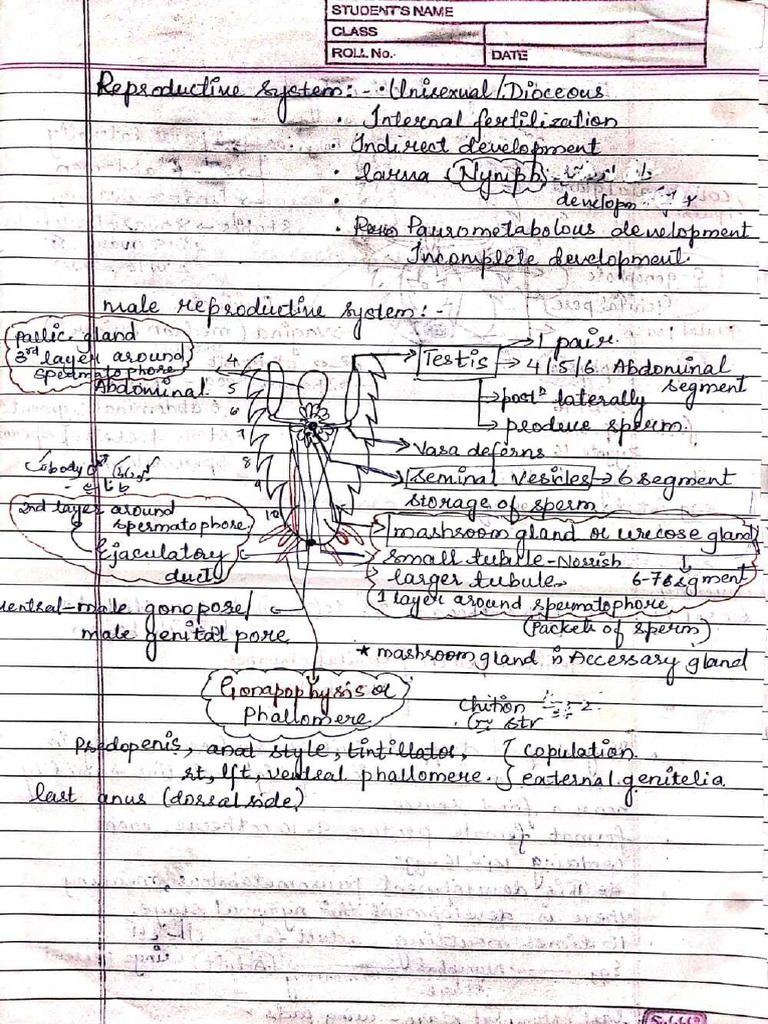 STUDENT'S NAME
CLASS
ROLL No.
DATE
Reproductive system:- • Unisexual/Dioceous
• Internal fertilization
• Indirect development
• larva (Nymph)
developm
• Paurometabolous development
Incomplete development.
male reproductive system:-
pallic gland
3rd layer around
spermatophore
Abdominal
4
5
6
7
8
9
10
Testis
→ 1 pair.
→ 4/5/6 Abdominal
segment
→ postn laterally
→ produce sperm.
→ Vasa deferns
→ Seminal vesicles → 6 segment
storage of sperm
mashroom gland or urecose gland
small tubule - Norrish
larger tubule
6-7 segment
1 layer around spermatophore
(Packets of sperm)
2nd layer around
spermatophore
Ejaculatory
duct
ventral-male gonopore/
male genital pore
* mashroom gland is Accessary gland
Gonapophysis or
Phallomere
Chition
str
Psedopenis, anal style, tintillator,
rt, lft, ventral phallomere.
copulation
external genitelia
last anus (dorsal side)